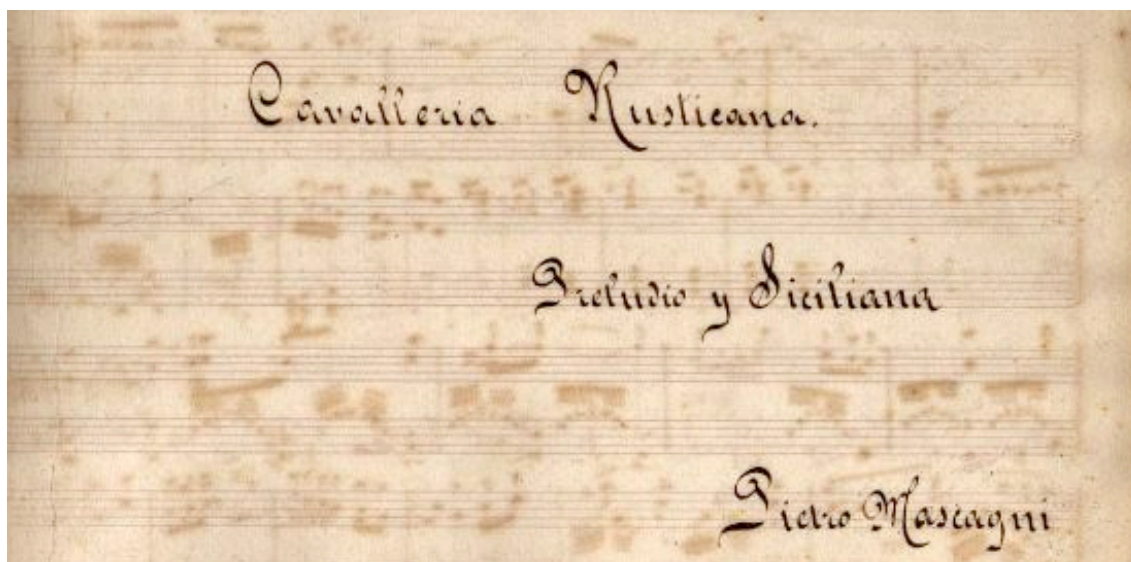 Cavalleria Rusticana.
Preludio y Siciliana
Pietro Mascagni